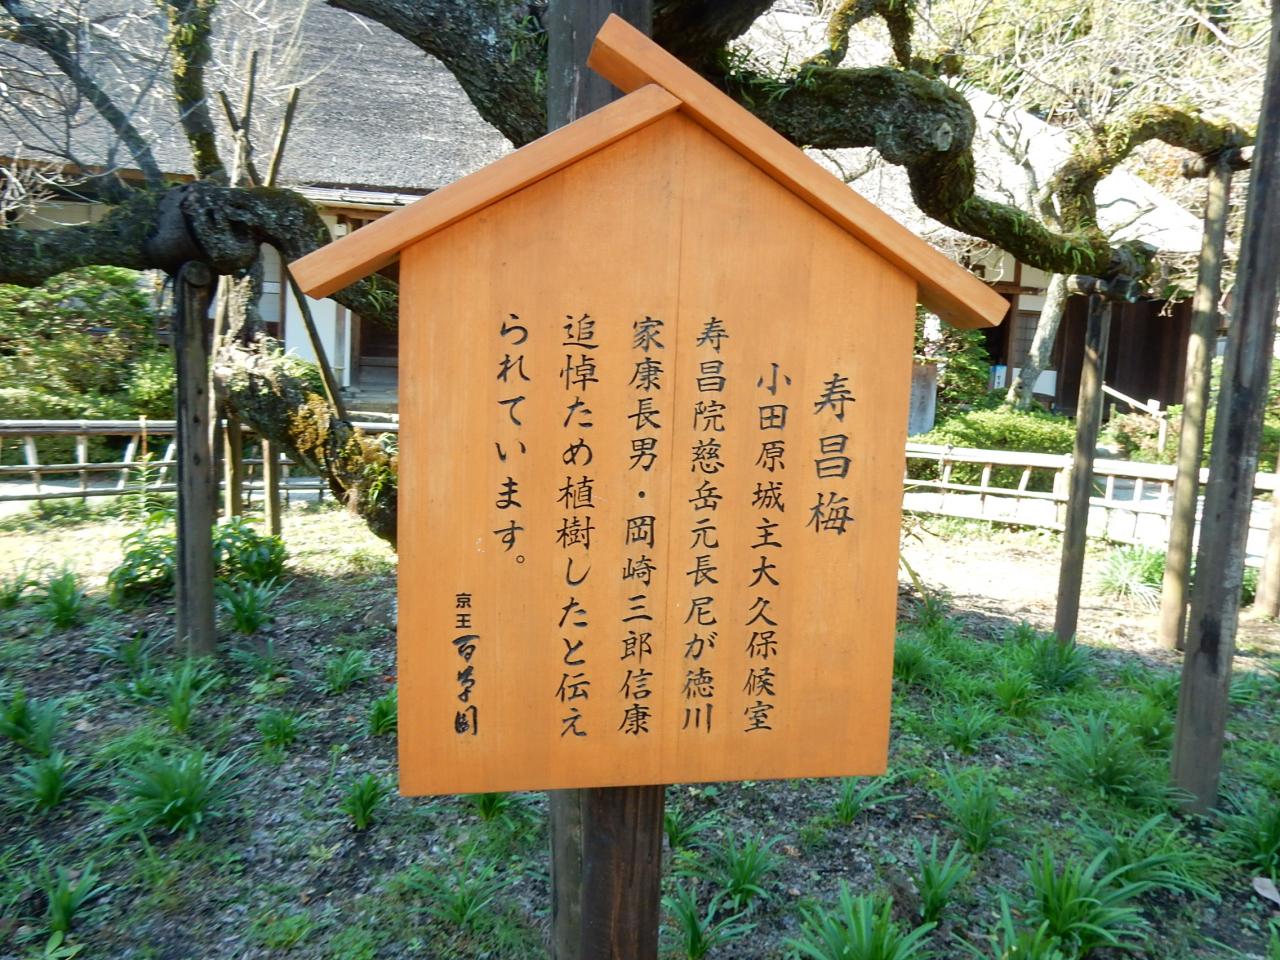 寿昌梅
小田原城主大久保候室
寿昌院慈岳元長尼が徳川
家康長男・岡崎三郎信康
追悼ため植樹したと伝え
られています。
京王百草園